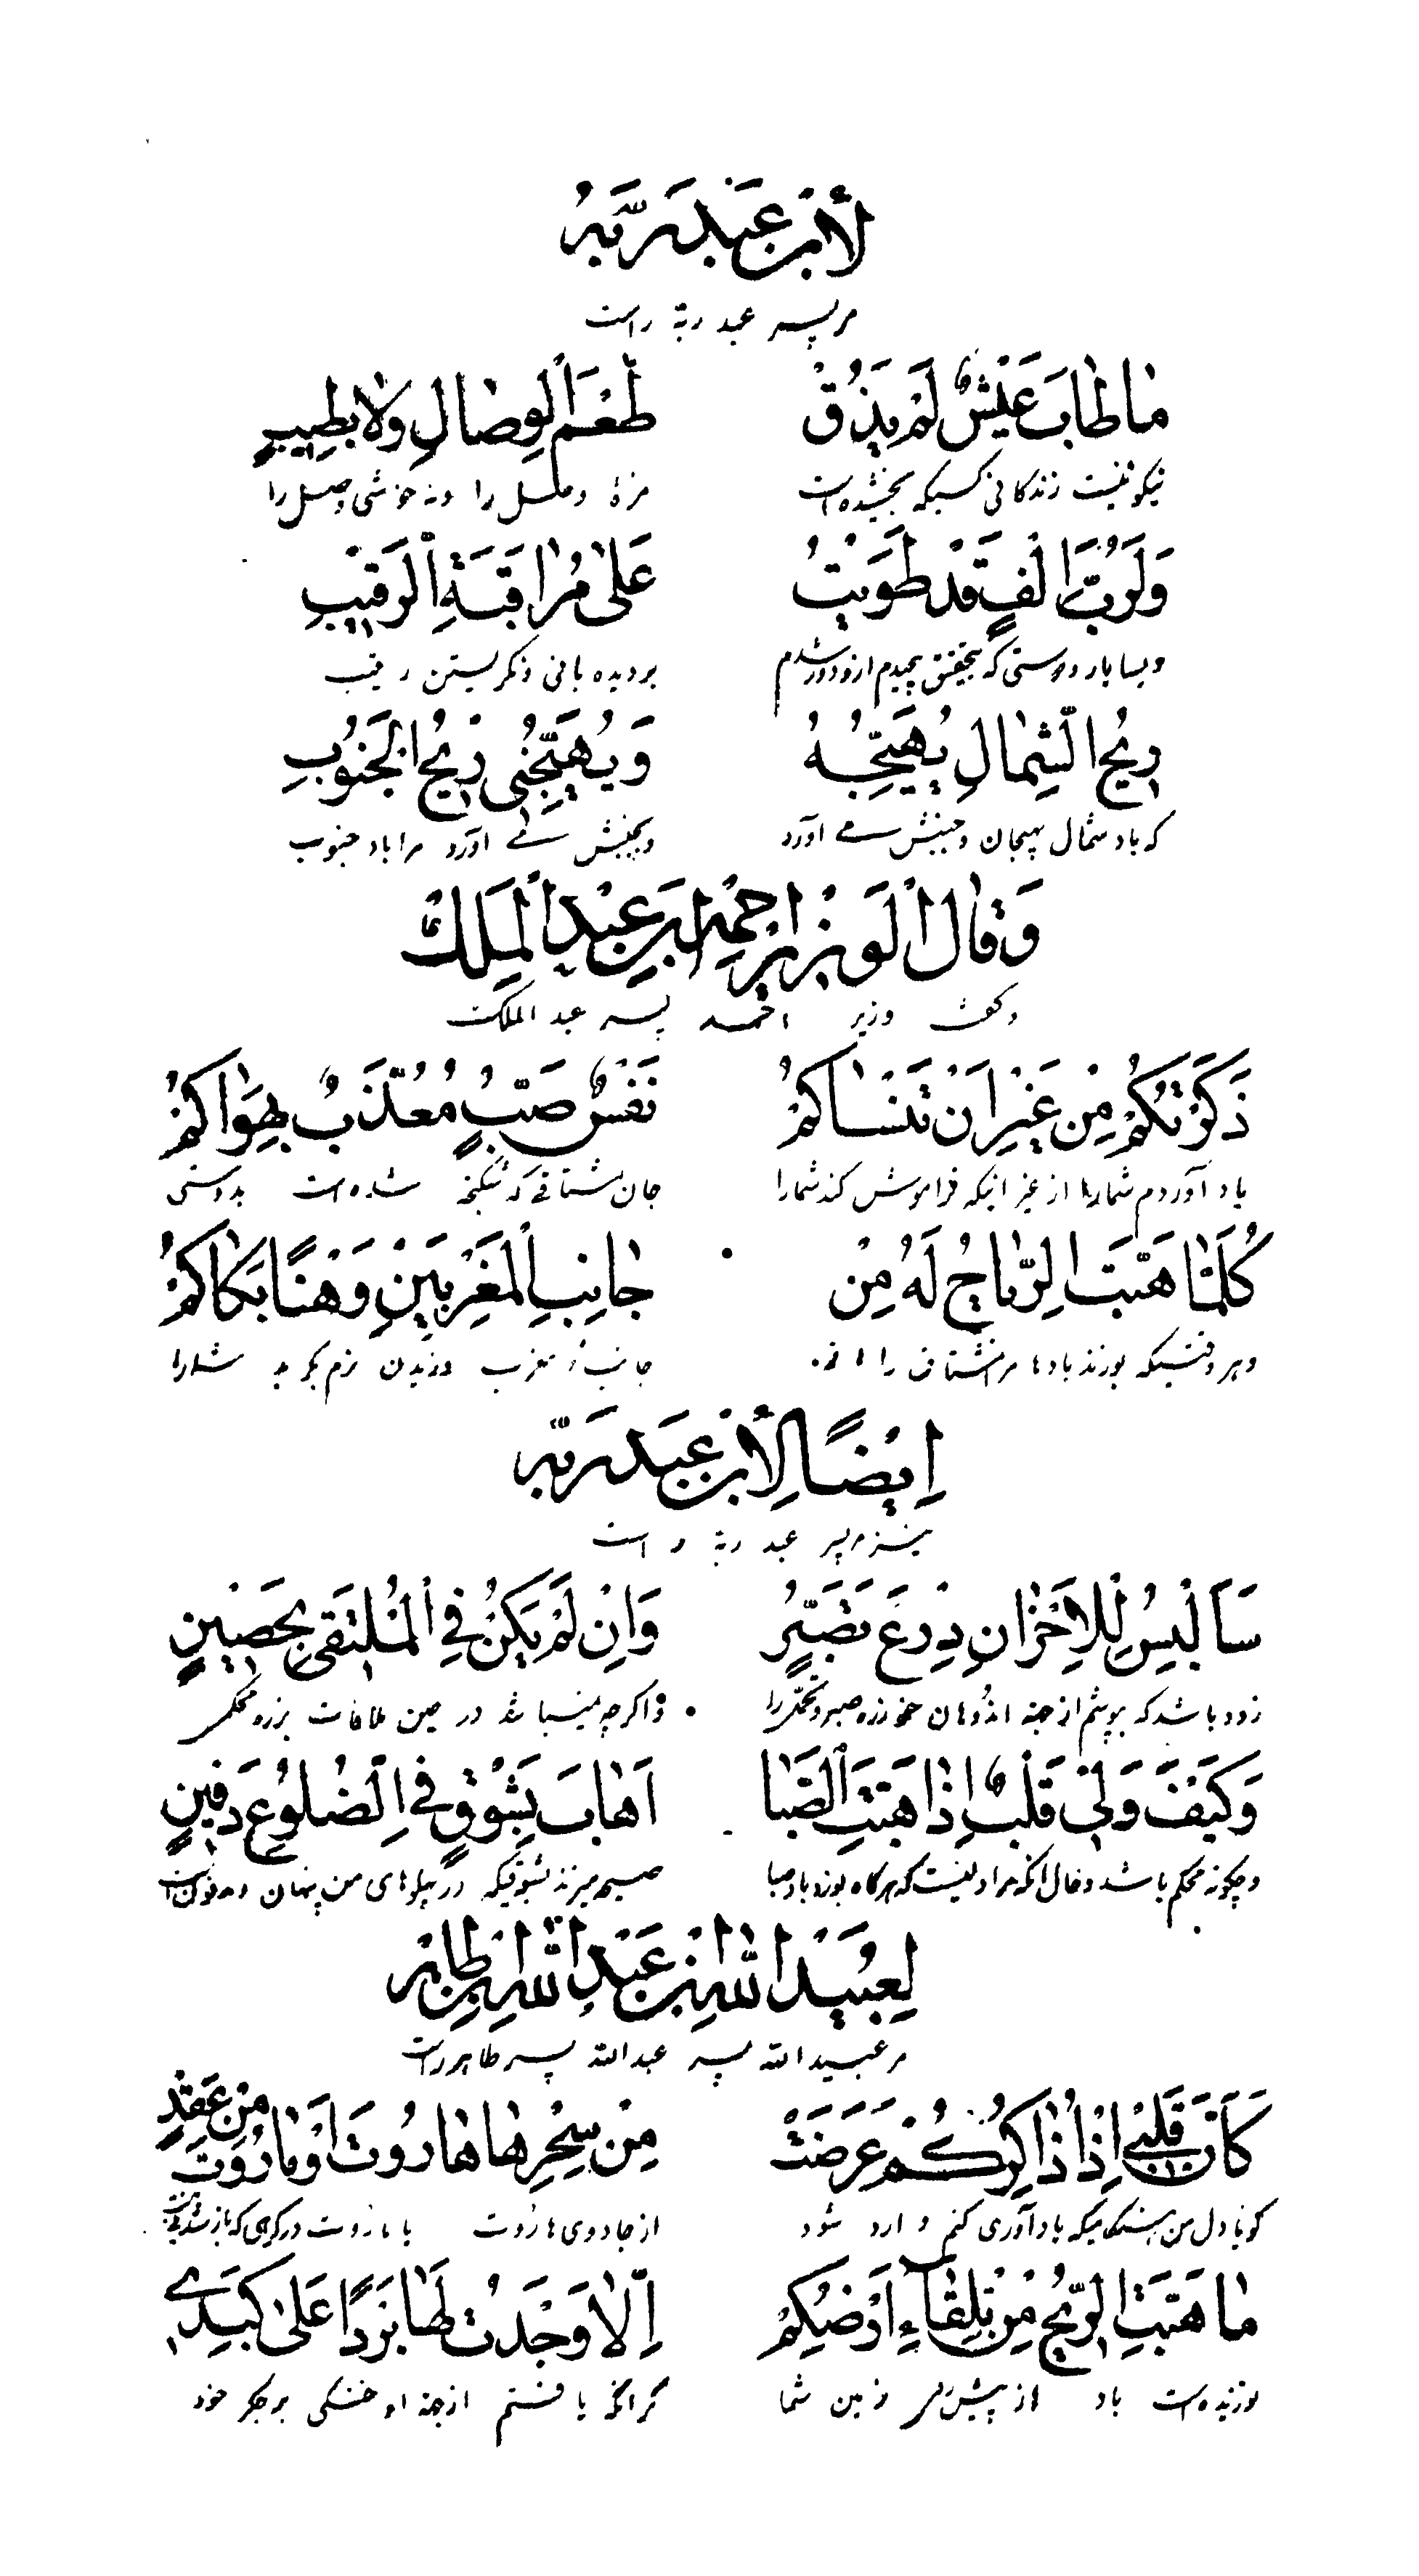 لأبن عبد ربّه
مر پسر عبد ربّه راست
ما طابَ عَيْشٌ لَمْ يَذُقْ طَعْمَ الْوِصالِ وَلا بِطِيبٍ
نیکو نیست زندگانی کسیکه نچشیده است مزهٔ وصل را و نه خوشی وصل را
وَلَرُبَّ اِلْفٍ قَدْ طَوَيْتُ عَلى مُراقَبَةِ الْرَقيبِ
و بسا یار و دوستی که بتحقیق پیچیدم از او دور شدم بر دیده بانی و نگریستن رقیب
ريحُ الشِّمالِ يُهَيِّجُهُ وَيُهَيِّجُنى رْيحُ الْجَنُوبِ
که باد شمال بهیجان و جنبش می آورد و بجنبش می آورد مرا باد جنوب
وَقالَ الْوَزيرُ احْمَدِ ابْنِ عَبْدِ الْمَلِكْ
و گفت وزیر احمد پسر عبد الملک
ذَكَرْتُكُمْ مِنْ غَيْرِ اَنْ تَنْساكُمْ نَفْسٌ صَبٍّ مُعَذَّبٌ بِهَواكُمْ
یاد آوردم شما را از غیر اینکه فراموش کند شما را جان مشتاقی که شکنجه شده است بدوستی
كُلَمّا هَبَّتَ الِرّياحُ لَهُ مِنْ جانِبِ الْمَغْرِبَيْنِ وَهْنًا بَكاكُمْ
و هر وقتیکه بوزند بادها مر مشتاق را از جانب مغرب وزیدن نرم بگرید شما را
اَيْضًا لِأبْن عَبد ربِّه
نیز مر پسر عبد ربه راست
سَاَلْبِسُ لِلْاَحْزانِ دِرْعَ تَصَبُّرٍ وَاِنْ لَمْ يَكُنْ فِي الْمُلْتَقى بِحَصينٍ
زود باشد که بپوشم از جهة اندوهان خود زره صبر و تحمل را و اگر چه نمیباشد در حین ملاقات بزره محکم
وَكَيْفَ وَلي قَلْبٌ اِذا هَبَّتِ الصَّبا اَهابَ بِشَوْقٍ فى الِضُلُوعِ دَفينٍ
و چگونه محکم باشد و حال آنکه مرا دلیست که هرگاه بوزد باد صبا صیحه میزند بشوقیکه در پهلوهای من پنهان و مدفون است
لِعُبَيْدِ اللهِ ابْنِ عَبْدِ اللهِ ابْنِ طاهِرْ
مر عبید الله پسر عبد الله پسر طاهر راست
كَاَنَّ قَلْبي اِذا ذاكِرُكُمْ عَرَضَتْ مِنْ سِحْرِها هارُوتَ اَوْ مارُوَتَ مِنْ عَقِدٍ
گویا دل من هنگامیکه یادآوری کنم وارد شود از جادوی هاروت یا ماروت در گرهی که
ما هَبَّتِ الرّيحُ مِنْ تِلِقاءِ اَرْضِكِمْ اِلّا وَجَدْتُ لَها بَرْدًا عَلى كَبَدي
نوزیده است باد از پیش زمین شما مگر آنکه یافتم از جهة او خنکی بر جگر خود